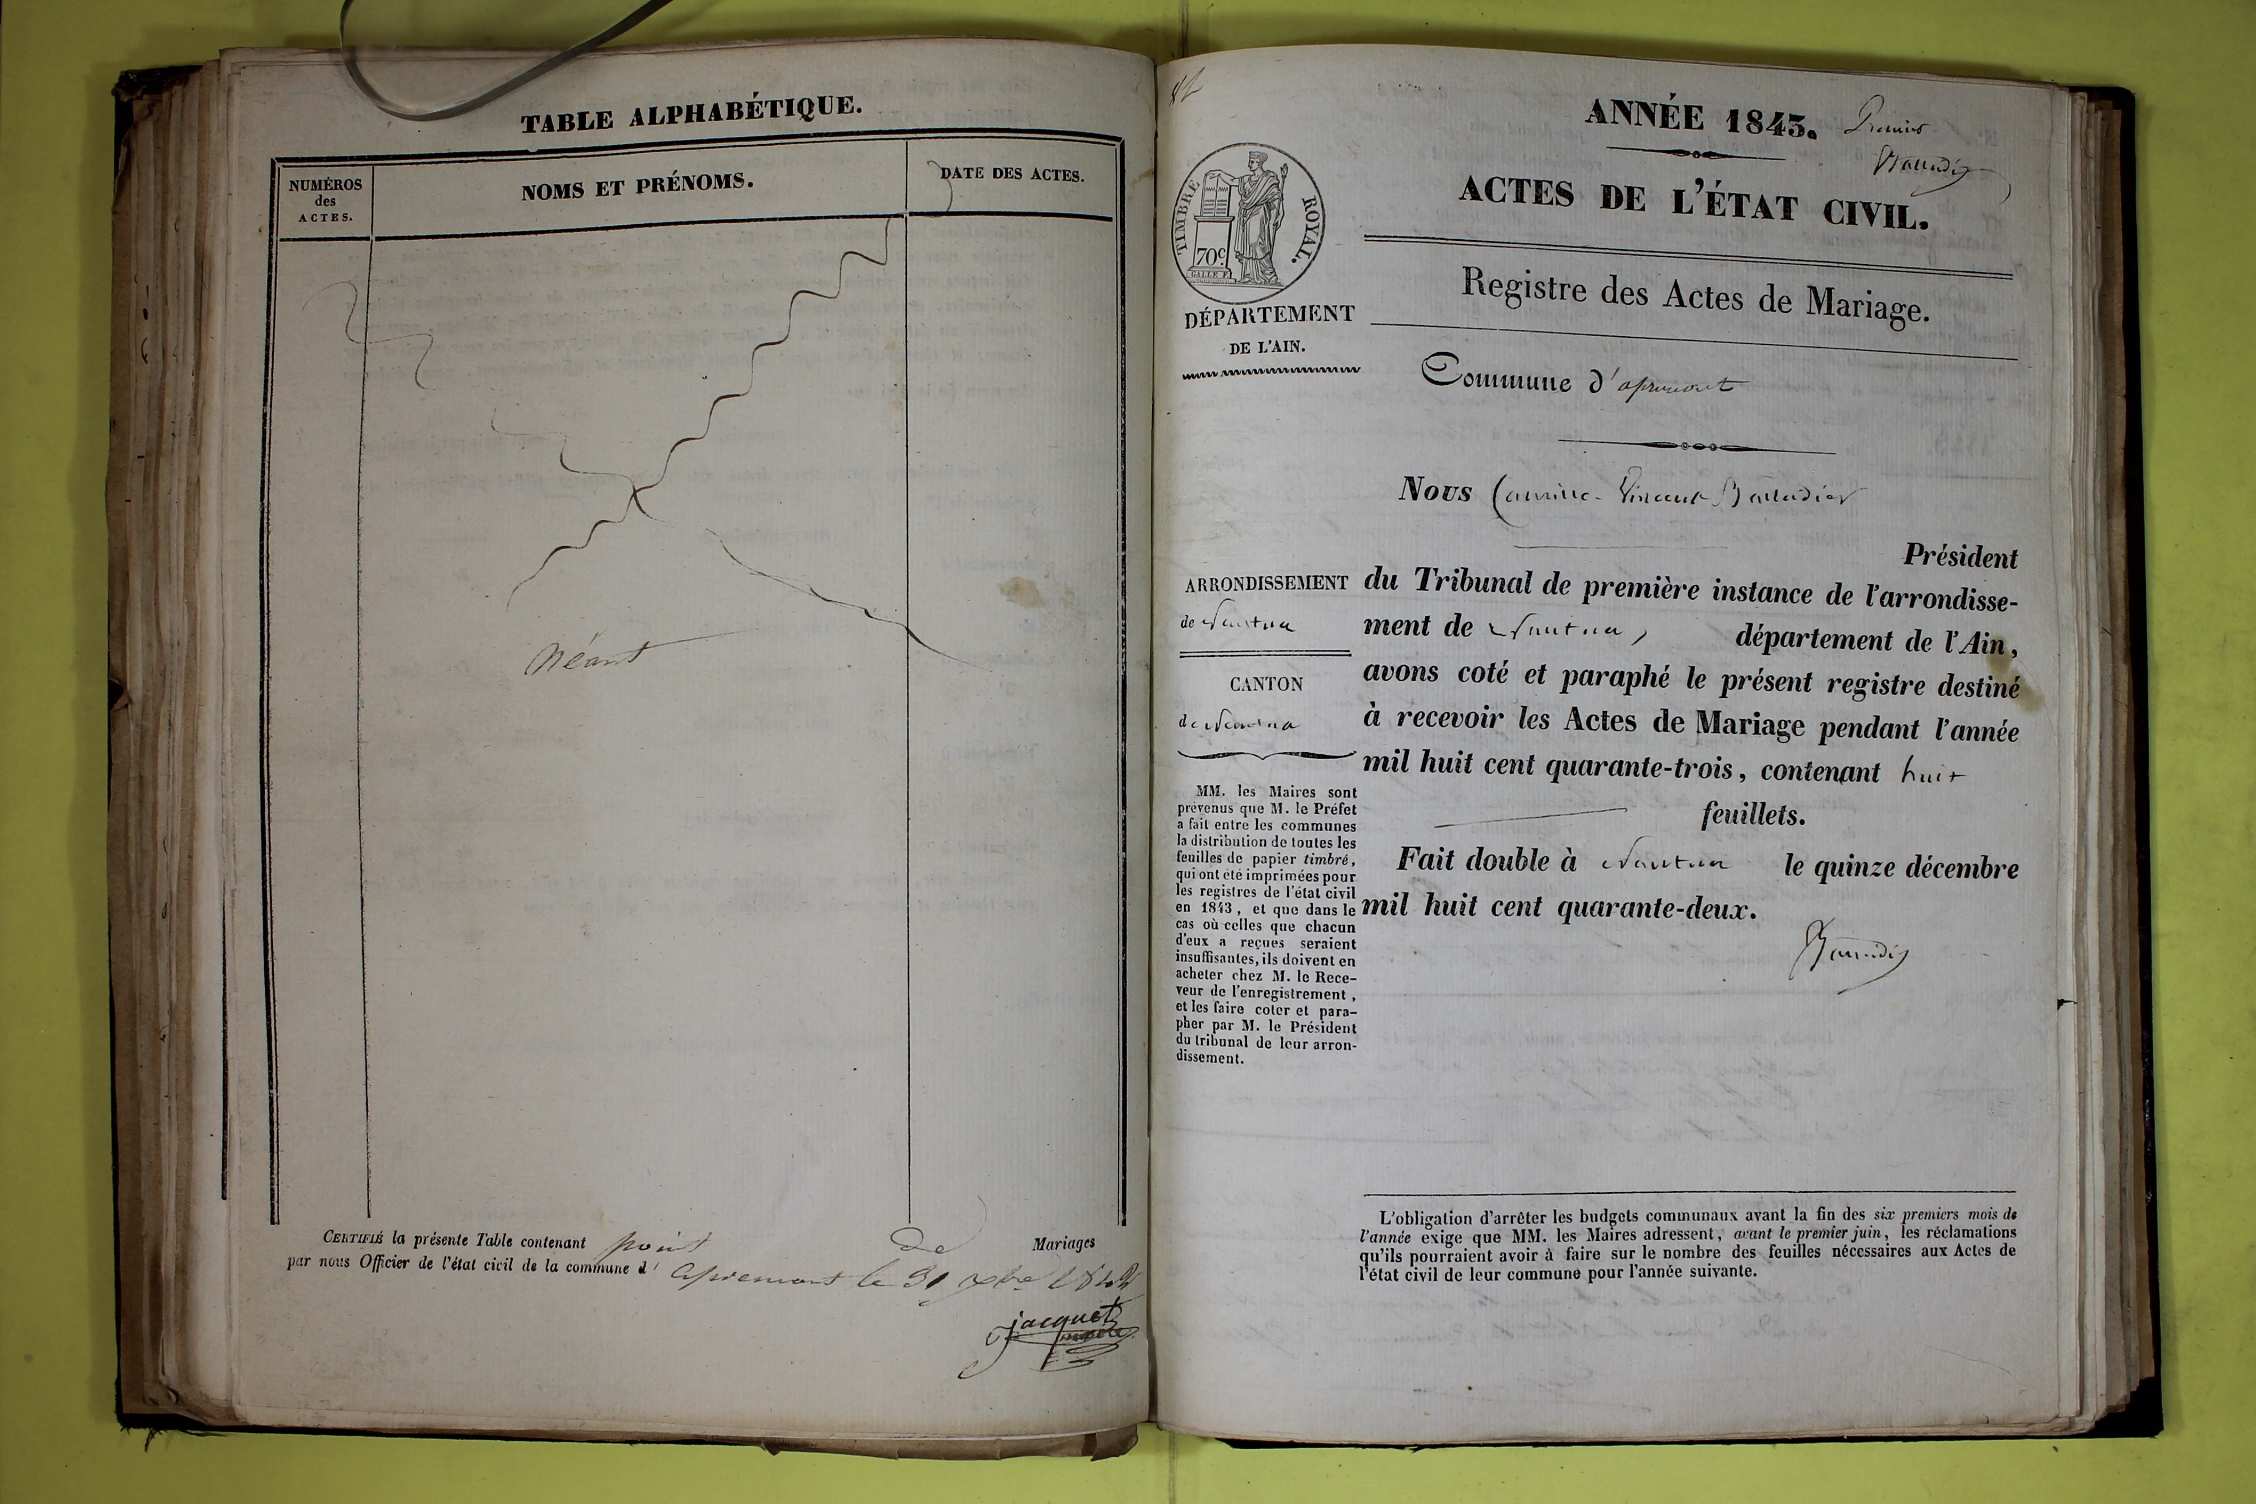 TABLE ALPHABÉTIQUE.
NUMÉROS
des
ACTES.
NOMS ET PRÉNOMS.
DATE DES ACTES.
Néant
CERTIFIÉ la présente Table contenant point de Mariages
par nous Officier de l'état civil de la commune d' apremont le 31 xbre
jacquet
ANNÉE 1843. Premier
ACTES DE L'ÉTAT CIVIL.
TIMBRE ROYAL.
70c.
GALLE F.
DÉPARTEMENT
DE L'AIN.
Registre des Actes de Mariage.
Commune d'apremont
Nous Camille-Vincent Baudier
Président
ARRONDISSEMENT
de Nantua
CANTON
de Nantua
du Tribunal de première instance de l'arrondisse-
ment de Nantua, département de l'Ain,
avons coté et paraphé le présent registre destiné
à recevoir les Actes de Mariage pendant l'année
mil huit cent quarante-trois, contenant huit
feuillets.
Fait double à Nantua le quinze décembre
mil huit cent quarante-deux.
MM. les Maires sont
prévenus que M. le Préfet
a fait entre les communes
la distribution de toutes les
feuilles de papier timbré,
qui ont été imprimées pour
les registres de l'état civil
en 1843, et que dans le
cas où celles que chacun
d'eux a reçues seraient
insuffisantes, ils doivent en
acheter chez M. le Rece-
veur de l'enregistrement,
et les faire coter et para-
pher par M. le Président
du tribunal de leur arron-
dissement.
L'obligation d'arrêter les budgets communaux avant la fin des six premiers mois de
l'année exige que MM. les Maires adressent, avant le premier juin, les réclamations
qu'ils pourraient avoir à faire sur le nombre des feuilles nécessaires aux Actes de
l'état civil de leur commune pour l'année suivante.